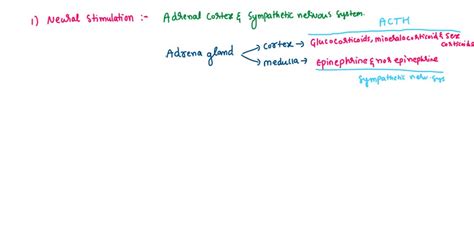 1) Neural Stimulation :- Adrenal Cortex & Sympathetic nervous system.
ACTH
Adrena gland → cortex → Glucocorticoids, mineralocorticoid & sex corticoids
→ medulla → Epinephrine & nor epinephrine
Sympathetic nerv sys